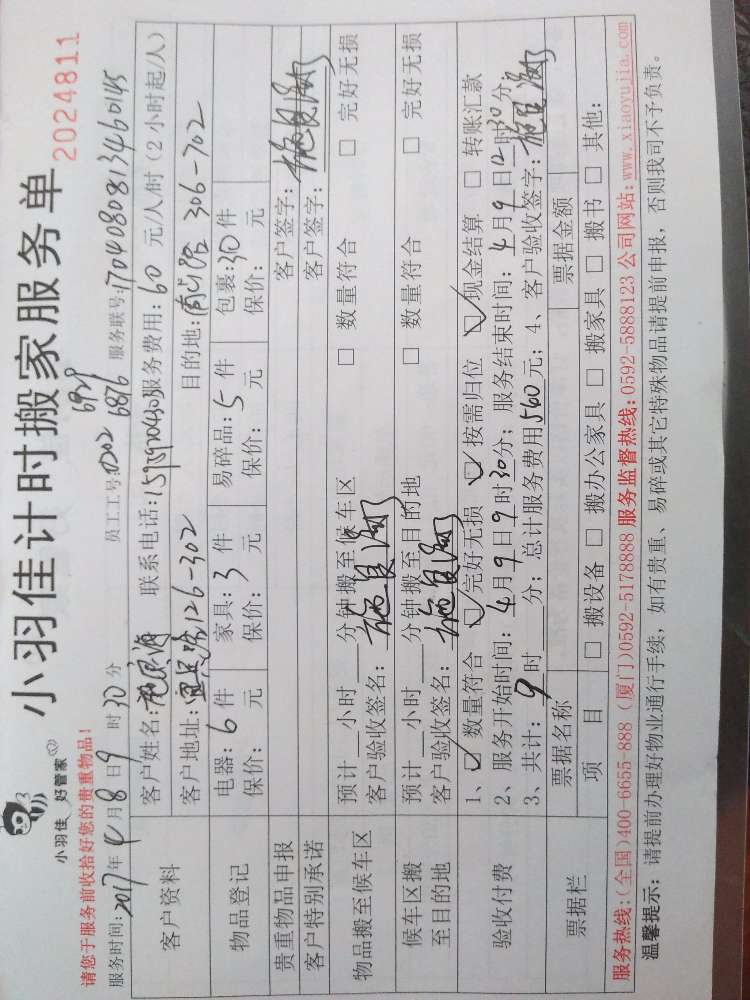 小羽佳 好管家
小羽佳计时搬家服务单
2024811
请您于服务前收拾好您的贵重物品!
服务时间:2017年4月8日9时30分 员工工号:0202 6929 6876 服务联号:170408081346045
客户资料
客户姓名: 联系电话: 服务费用:60元/人/时(2小时起/人)
客户地址:宜 126-302 目的地: 306-702
物品登记
电器:6件 家具:3件 易碎品:5件 包裹:30件
保价: 元 保价: 元 保价: 元 保价: 元
贵重物品申报 客户签字:
客户特别承诺 客户签字:
物品搬至候车区
预计__小时__分钟搬至候车区 □ 数量符合 □ 完好无损
客户验收签名:
候车区搬至目的地
预计__小时__分钟搬至目的地 □ 数量符合 □ 完好无损
客户验收签名:
验收付费
1、☑ 数量符合 ☑ 完好无损 ☑ 按需归位 ☑ 现金结算 □ 转账汇款
2、服务开始时间:4月9日9时30分;服务结束时间:4月9日12时30分
3、共计:9时__分;总计服务费用540元;4、客户验收签字:
票据栏
票据名称 票据金额
项 目 □ 搬设备 □ 搬办公家具 □ 搬家具 □ 搬书 □ 其他:
服务热线:(全国)400-6655-888 (厦门)0592-5178888 服务监督热线:0592-5888123 公司网站:www.xiaoyujia.com
温馨提示: 请提前办理好物业通行手续,如有贵重、易碎或其它特殊物品请提前申报,否则我司不予负责。